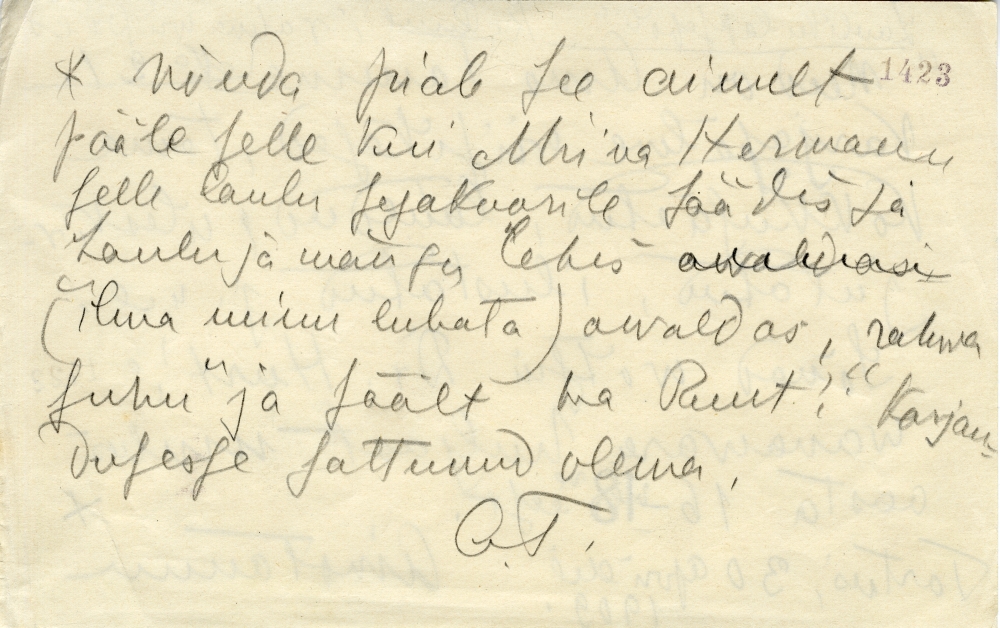 x Nõnda piab see ainult 1423
pääle selle kui Miina Hermann
selle laulu segakoorile säädis ja
Laulu ja mängu lehes awaldasi
(ilma minu lubata) awaldas, rahwa
suhu" ja säält ka Ruut!" Karjan-
dusesse sattunud olema.
A.T.